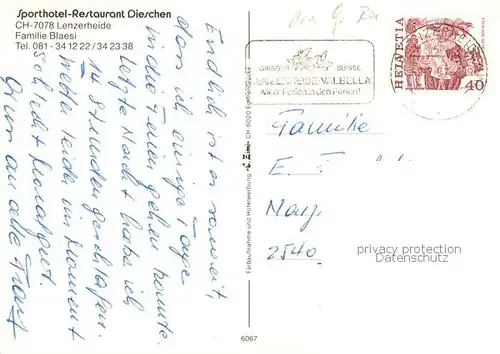 Sporthotel-Restaurant Dieschen
CH-7078 Lenzerheide
Familie Blaesi
Tel. 081 - 34 12 22 / 34 23 38
Endlich ist es soweit,
dass ich einige Tage
in die Ferien gehen konnte.
Letzte Nacht habe ich
14 Stunden geschlafen.
Wetter leider im Moment
schlecht
Gruss an alle
Farbaufnahme und Hotelwerbung
CH 6020 Emmenbrücke
6067
SUISSE
LENZERHEIDE-VALBELLA
Mehr Ferien in den Ferien!
HELVETIA
40
Familie
E.
2540
privacy protection